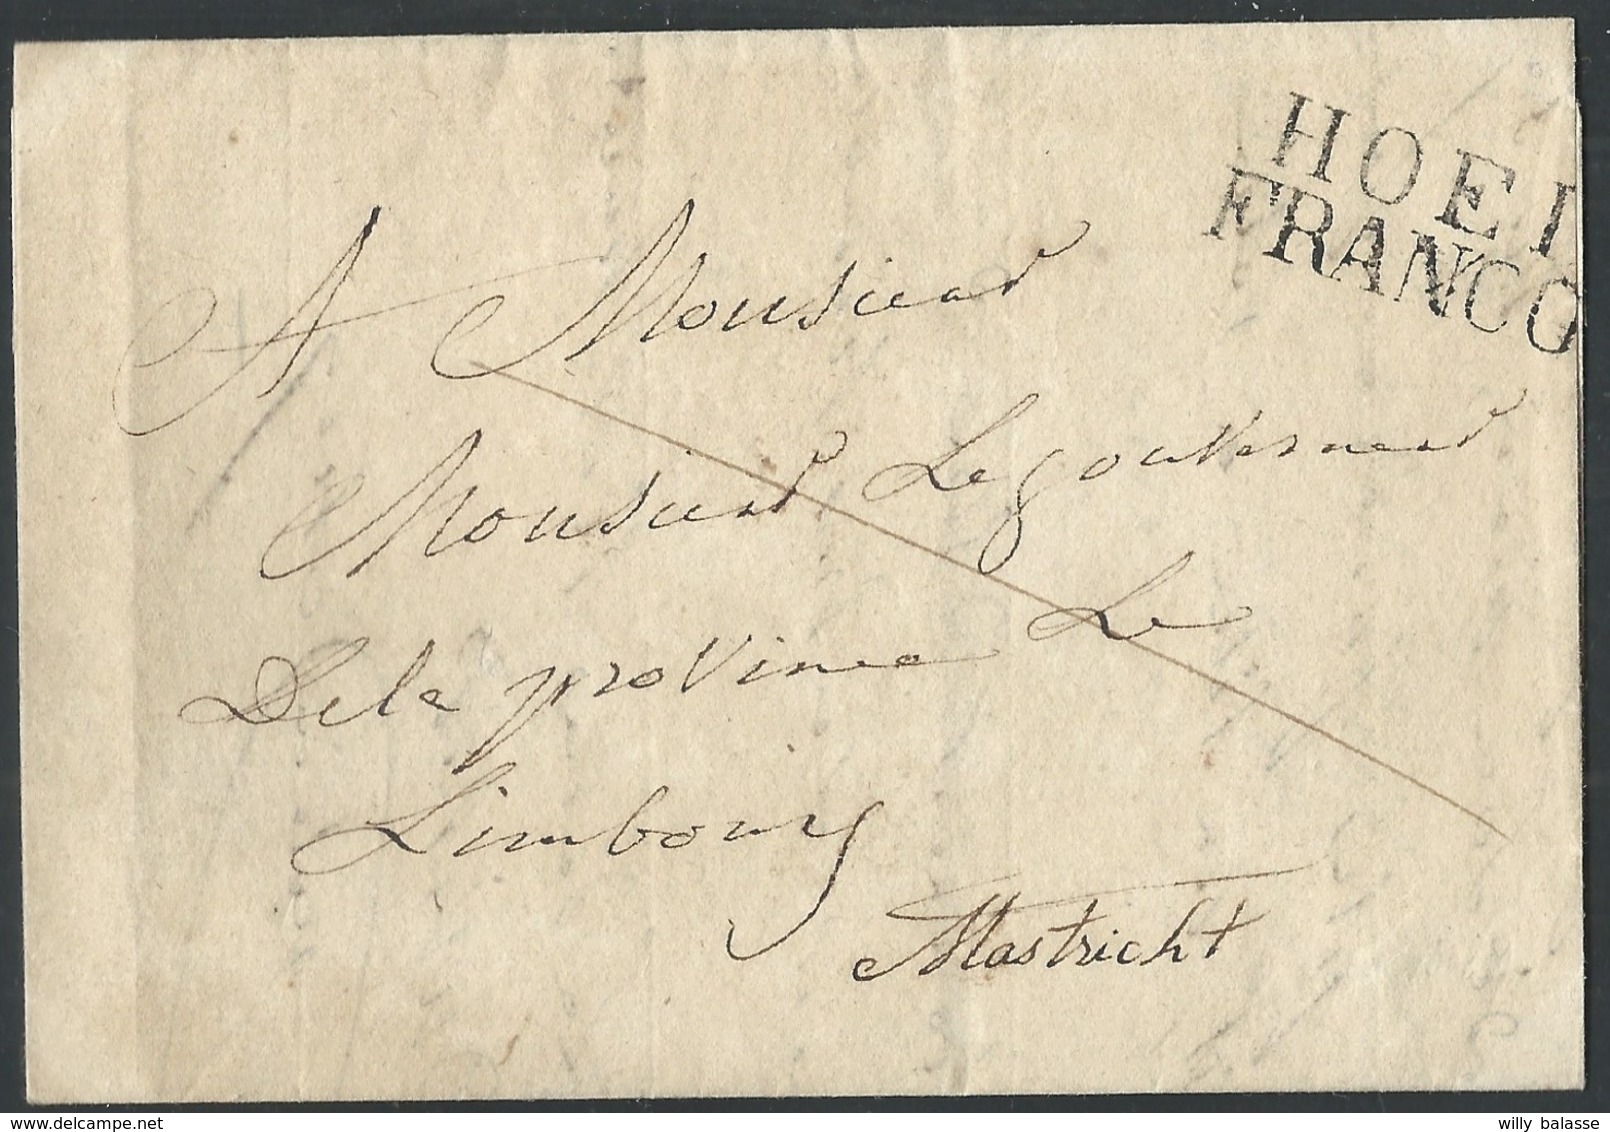 HOEI
FRANCO
A Monsieur
Monsieur Le gouverneur
De la province Le
Limbourg
Mastricht
delcampe.net
willy balasse